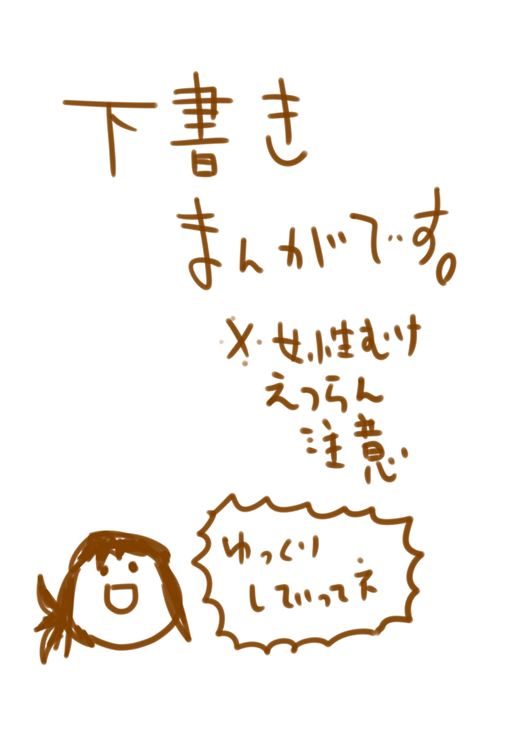 下書き
まんがです。
※女性むけ
えつらん
注意
ゆっくり
していってネ